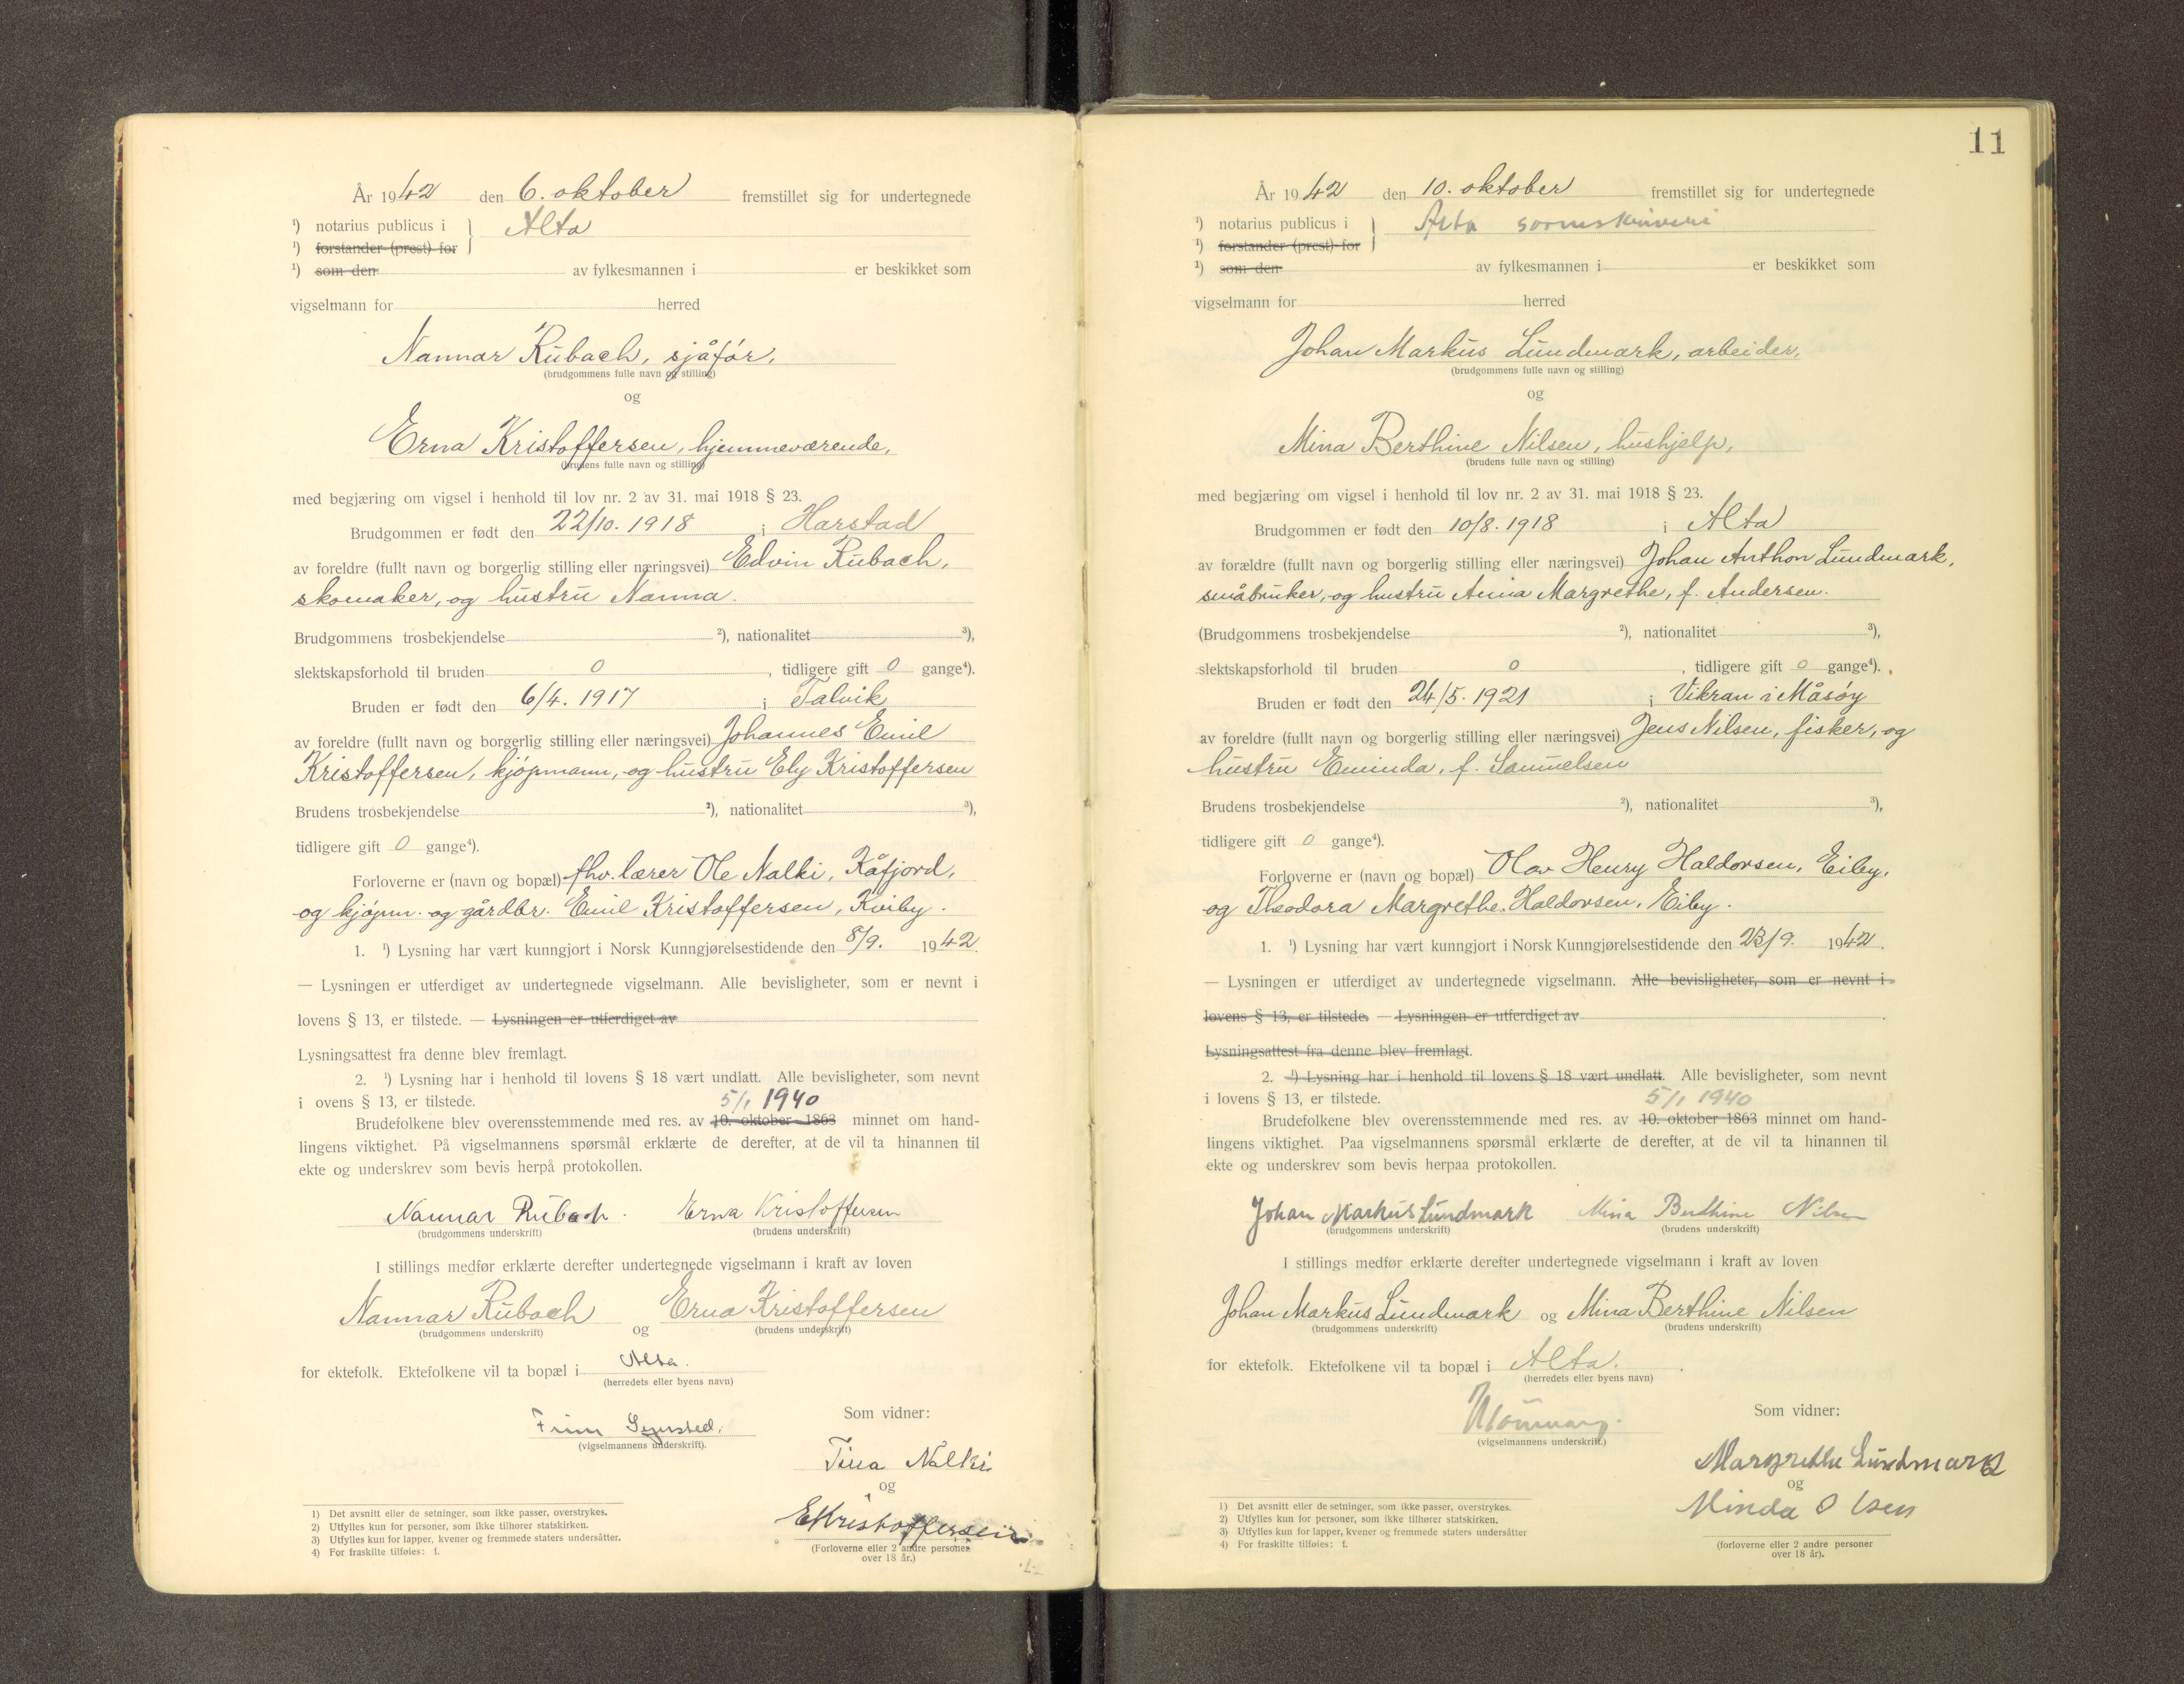 År 1942 den 6. oktober fremstillet sig for undertegnede
¹) notarius publicus i } Alta
¹) forstander (prest) for
¹) som den av fylkesmannen i er beskikket som
vigselmann for herred
Nannar Rubach, sjåfør,
(brudgommens fulle navn og stilling)
og
Erna Kristoffersen, hjemmeværende,
(brudens fulle navn og stilling)
med begjæring om vigsel i henhold til lov nr. 2 av 31. mai 1918 § 23.
Brudgommen er født den 22/10. 1918 i Harstad
av foreldre (fullt navn og borgerlig stilling eller næringsvei) Edvin Rubach,
skomaker, og hustru Nanna.
Brudgommens trosbekjendelse ²), nationalitet ³),
slektskapsforhold til bruden 0, tidligere gift 0 gange⁴).
Bruden er født den 6/4. 1917 i Talvik
av foreldre (fullt navn og borgerlig stilling eller næringsvei) Johannes Emil
Kristoffersen, kjøpmann, og hustru Ely Kristoffersen
Brudens trosbekjendelse ²), nationalitet ³),
tidligere gift 0 gange⁴).
Forloverne er (navn og bopæl) fhv. lærer Ole Nalki, Kåfjord,
og kjøpm. og gårdbr. Emil Kristoffersen, Kviby.
1. ¹) Lysning har vært kunngjort i Norsk Kunngjørelsestidende den 8/9. 1942.
— Lysningen er utferdiget av undertegnede vigselmann. Alle bevisligheter, som er nevnt i
lovens § 13, er tilstede. — Lysningen er utferdiget av
Lysningsattest fra denne blev fremlagt.
2. ¹) Lysning har i henhold til lovens § 18 vært undlatt. Alle bevisligheter, som nevnt
i ovens § 13, er tilstede.
5/1 1940
Brudefolkene blev overensstemmende med res. av 10. oktober 1863 minnet om hand-
lingens viktighet. På vigselmannens spørsmål erklærte de derefter, at de vil ta hinannen til
ekte og underskrev som bevis herpå protokollen.
Nannar Rubach. Erna Kristoffersen
(brudgommens underskrift) (brudens underskrift)
I stillings medfør erklærte derefter undertegnede vigselmann i kraft av loven
Nannar Rubach og Erna Kristoffersen
(brudgommens underskrift) (brudens underskrift)
for ektefolk. Ektefolkene vil ta bopæl i Alta.
(herredets eller byens navn)
(vigselmannens underskrift).
Som vidner:
Tina Nalki
og
EKristoffersen
(Forloverne eller 2 andre personer
over 18 år.)
1) Det avsnitt eller de setninger, som ikke passer, overstrykes.
2) Utfylles kun for personer, som ikke tilhører statskirken.
3) Utfylles kun for lapper, kvener og fremmede staters undersåtter.
4) For fraskilte tilføies: f.
11
År 1942 den 10. oktober fremstillet sig for undertegnede
¹) notarius publicus i } Alta sorenskriveri
¹) forstander (prest) for
¹) som den av fylkesmannen i er beskikket som
vigselmann for herred
Johan Markus Lundmark, arbeider,
(brudgommens fulle navn og stilling)
og
Mina Berthine Nilsen, hushjelp,
(brudens fulle navn og stilling)
med begjæring om vigsel i henhold til lov nr. 2 av 31. mai 1918 § 23.
Brudgommen er født den 10/8. 1918 i Alta
av forældre (fullt navn og borgerlig stilling eller næringsvei) Johan Anthon Lundmark,
småbruker, og hustru Anna Margrethe, f. Andersen.
(Brudgommens trosbekjendelse ²), nationalitet ³),
slektskapsforhold til bruden 0, tidligere gift 0 gange⁴).
Bruden er født den 24/5. 1921 i Vikran i Måsøy
av foreldre (fullt navn og borgerlig stilling eller næringsvei) Jens Nilsen, fisker, og
hustru Eminda, f. Samuelsen
Brudens trosbekjendelse ²), nationalitet ³),
tidligere gift 0 gange⁴).
Forloverne er (navn og bopæl) Olav Henry Haldorsen, Eiby,
og Theodora Margrethe Haldorsen, Eiby.
1. ¹) Lysning har vært kunngjort i Norsk Kunngjørelsestidende den 23/9. 1942.
— Lysningen er utferdiget av undertegnede vigselmann. Alle bevisligheter, som er nevnt i
lovens § 13, er tilstede. — Lysningen er utferdiget av
Lysningsattest fra denne blev fremlagt.
2. ¹) Lysning har i henhold til lovens § 18 vært undlatt. Alle bevisligheter, som nevnt
i lovens § 13, er tilstede.
5/1 1940
Brudefolkene blev overensstemmende med res. av 10. oktober 1863 minnet om hand-
lingens viktighet. Paa vigselmannens spørsmål erklærte de derefter, at de vil ta hinannen til
ekte og underskrev som bevis herpaa protokollen.
Johan Markus Lundmark Mina Berthine Nilsen
(brudgommens underskrift) (brudens underskrift)
I stillings medfør erklærte derefter undertegnede vigselmann i kraft av loven
Johan Markus Lundmark og Mina Berthine Nilsen
(brudgommens underskrift) (brudens underskrift)
for ektefolk. Ektefolkene vil ta bopæl i Alta.
(herredets eller byens navn)
(vigselmannens underskrift.)
Som vidner:
Margrethe Lundmark
og
Minda Olsen
(forloverne eller 2 andre personer
over 18 år).
1) Det avsnitt eller de setninger, som ikke passer, overstrykes.
2) Utfylles kun for personer, som ikke tilhører statskirken.
3) Utfylles kun for lapper, kvener og fremmede staters undersåtter
4) For fraskilte tilføies: f.